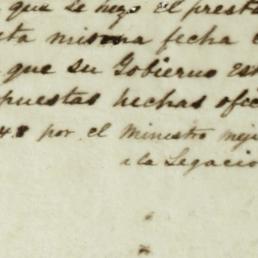 que se hizo el prest
ta misma fecha
que su Gobierno es
puestas hechas ofi
48 por el Ministro meji
a la Legacio